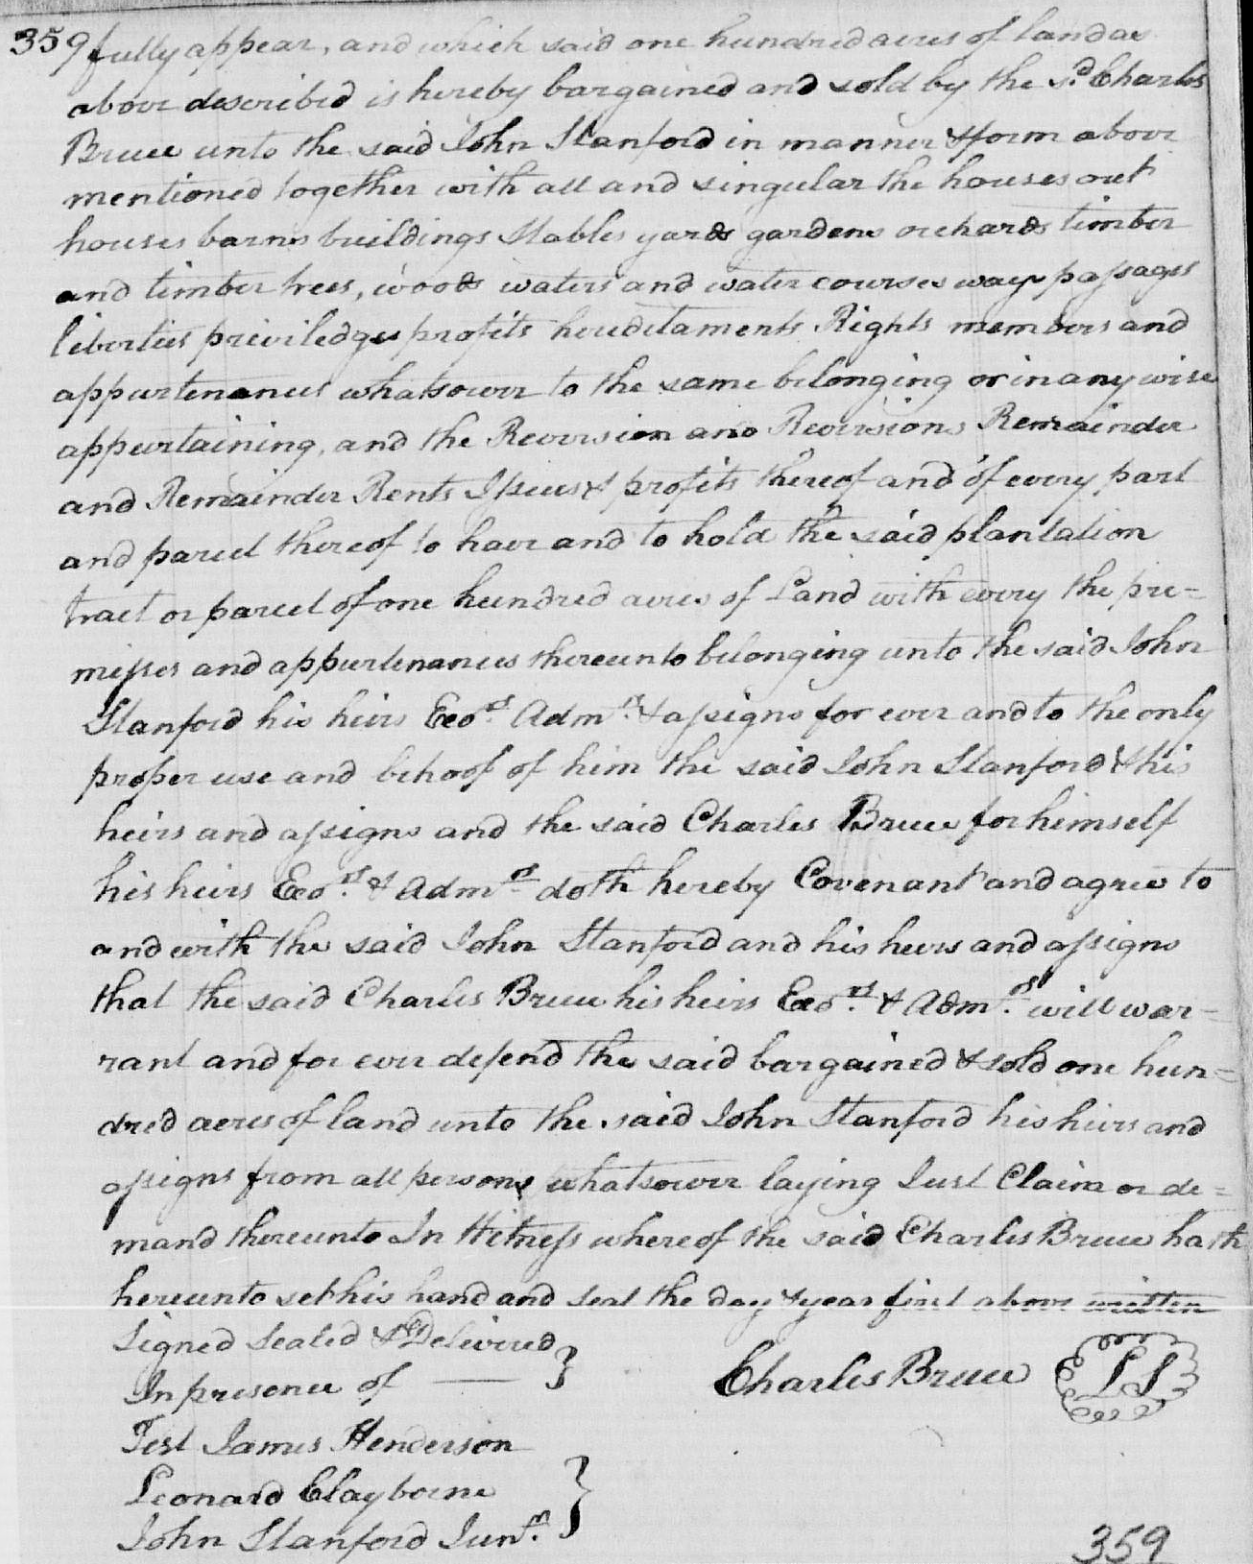 359 fully appear, and which said one hundred acres of land as
above described is hereby bargained and sold by the sd. Charles
Bruce unto the said John Stanford in manner & form above
mentioned together with all and singular the houses out
houses barns buildings Stables yards gardens orchards timber
and timber trees, woods waters and water courses ways passages
liberties priviledges profits hereditaments Rights members and
appurtenances whatsoever to the same belonging or in any wise
appurtaining, and the Reversion and Reversions Remainder
and Remainder Rents Issues & profits thereof and of every part
and parcel thereof to have and to hold the said plantation
tract or parcel of one hundred acres of Land with every the pre=
misses and appurtenances thereunto belonging unto the said John
Stanford his heirs Exors. Admrs. & assigns for ever and to the only
proper use and behoof of him the said John Stanford & his
heirs and assigns and the said Charles Bruce for himself
his heirs Exors. & Admrs doth hereby Covenant and agree to
and with the said John Stanford and his heirs and assigns
that the said Charles Bruce his heirs Exors. & Admrs. will war=
rant and for ever defend the said bargained & sold one hun=
dred acres of land unto the said John Stanford his heirs and
assigns from all persons whatsoever laying Just Claim or de=
mand thereunto In Witness whereof the said Charles Bruce hath
hereunto set his hand and seal the day & year first above written
Signed Sealed & Delivered
In presence of — } Charles Bruce LS
Test James Henderson
Leonard Clayborne
John Stanford Junr. }
359